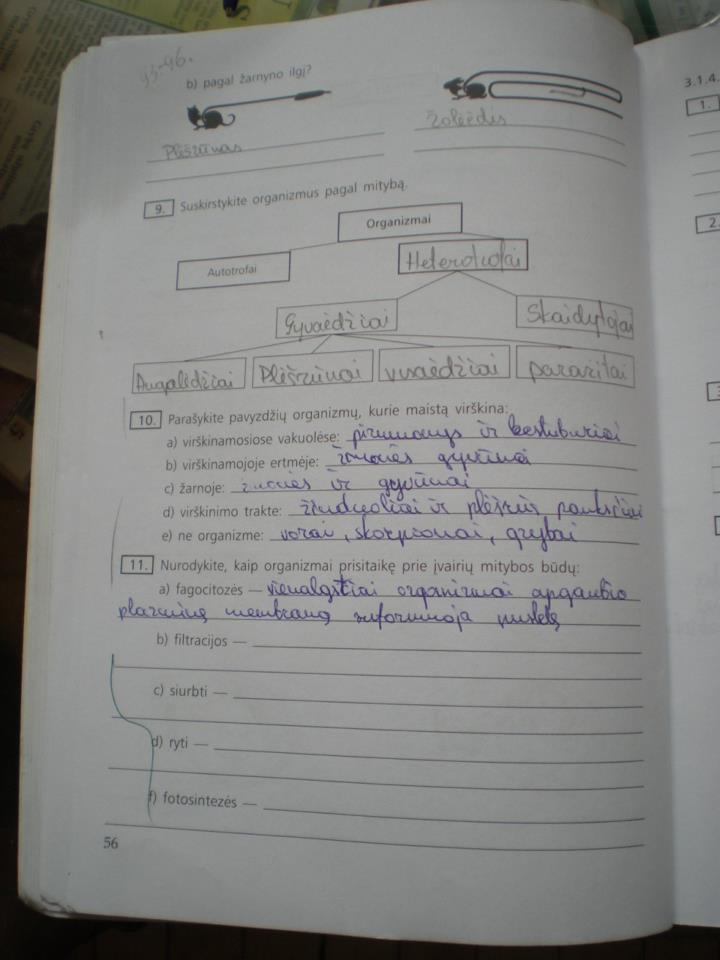 93-96.
b) pagal žarnyno ilgį?
Plėšrūnas
Žolėėdis
9. Suskirstykite organizmus pagal mitybą.
Organizmai
Autotrofai
Heterotrofai
Gyvaėdžiai
Skaidytojai
Augalėdžiai
Plėšrūnai
visaėdžiai
parazitai
10. Parašykite pavyzdžių organizmų, kurie maistą virškina:
a) virškinamosiose vakuolėse: pirmuonys ir bestuburiai
b) virškinamojoje ertmėje: žmonės gyvūnai
c) žarnoje: žmonės ir gyvūnai
d) virškinimo trakte: žinduoliai ir plėšrūs paukščiai
e) ne organizme: vorai, skorpionai, grybai
11. Nurodykite, kaip organizmai prisitaikę prie įvairių mitybos būdų:
a) fagocitozės — vienaląsčiai organizmai apgaubia
plazminę membraną suformuoja puslelę
b) filtracijos —
c) siurbti —
d) ryti —
f) fotosintezės —
56
3.1.4.
1.
2.